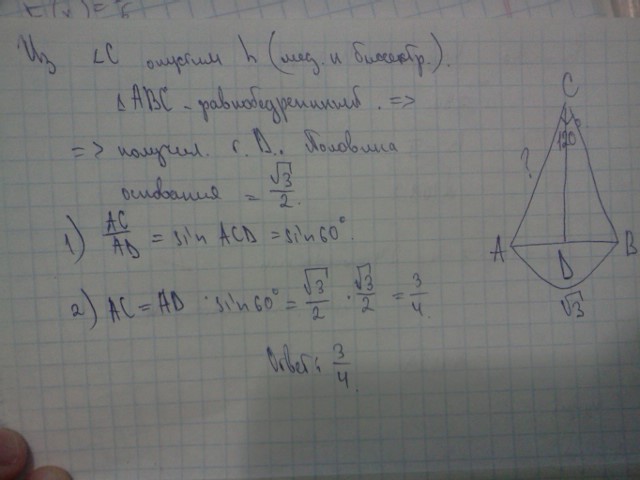 Из ∠C опустим h (мед. и биссектр.).
△ABC - равнобедренный. =>
=> получил. т. D. Половина
основания = √3/2.
1) AC/AD = sin ACD = sin 60°.
2) AC = AD · sin60° = √3/2 · √3/2 = 3/4.
Ответ: 3/4.
C
120°
?
A
D
B
√3